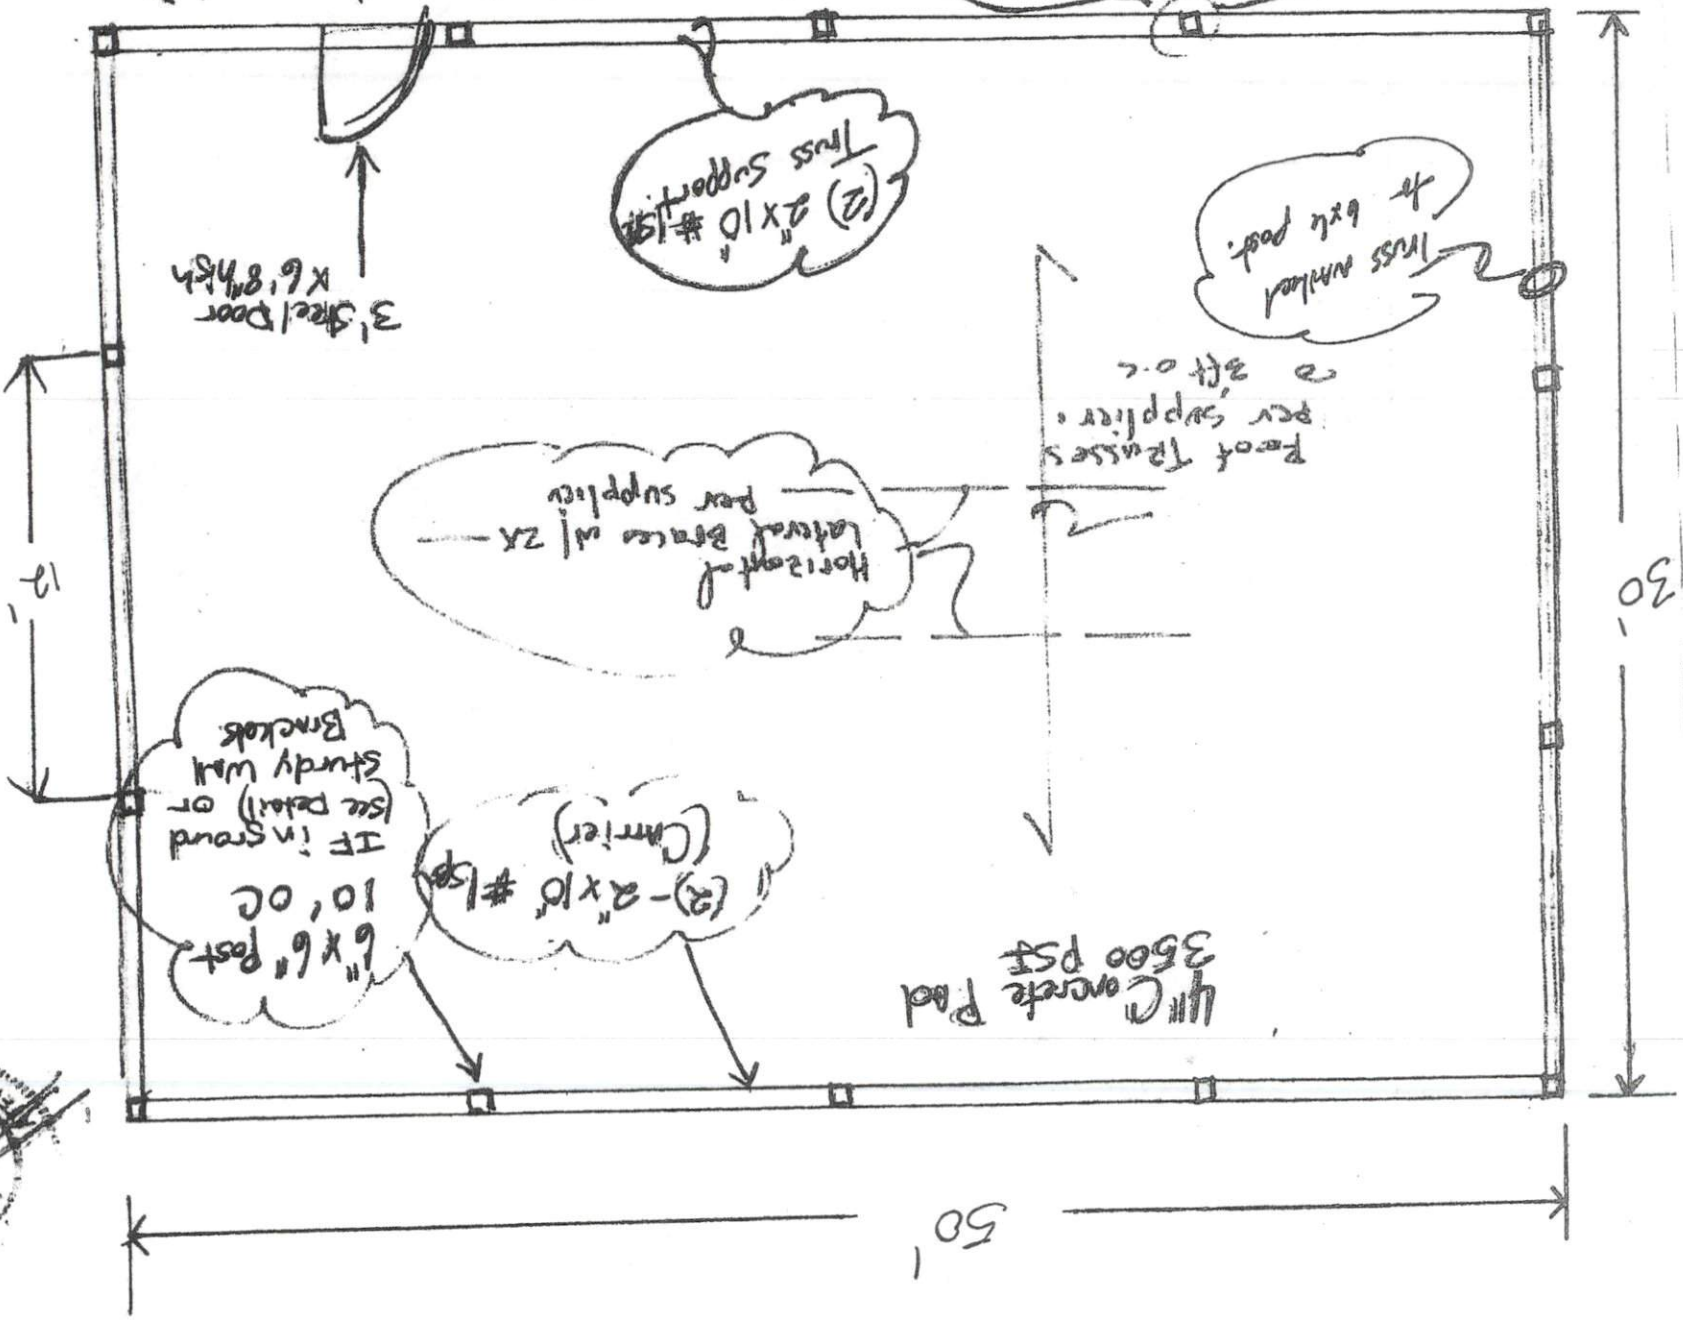 50'
4" Concrete Pad
3500 PSI
(2)-2"x10" #1SP
(Carrier)
6"x6" Post
10' OC
IF in ground
(see Detail) or
Sturdy Wall
Brackets
30'
12'
Horizontal
Lateral Braces w/ 2X
per supplier
Roof Trusses
per supplier.
@ 3ft o.c
Truss nailed
to 6x6 post.
(2) 2"x10" #1SP
Truss Support.
3' Steel Door
x 6'8" high